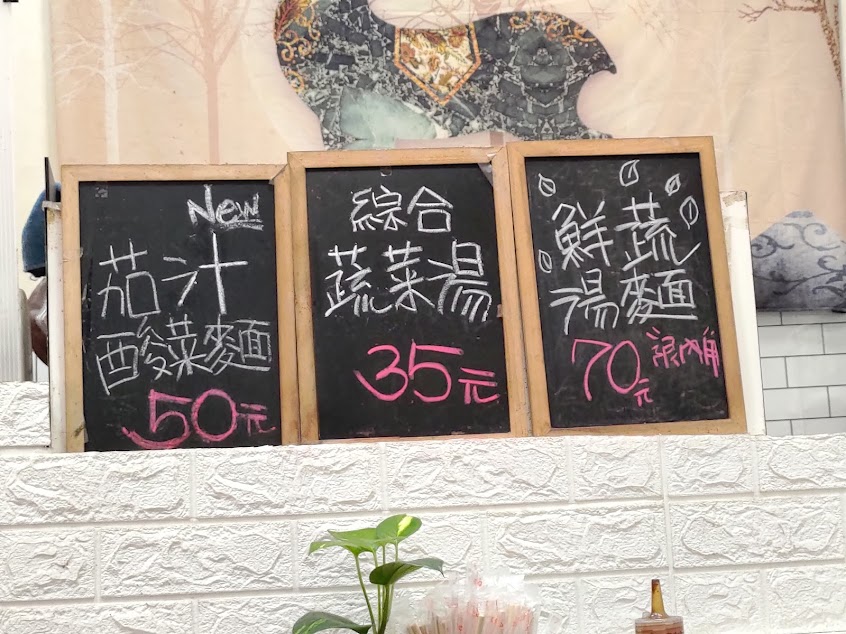 New
茄汁
酸菜麵
50元
綜合
蔬菜湯
35元
鮮蔬
湯麵
70元
限內用